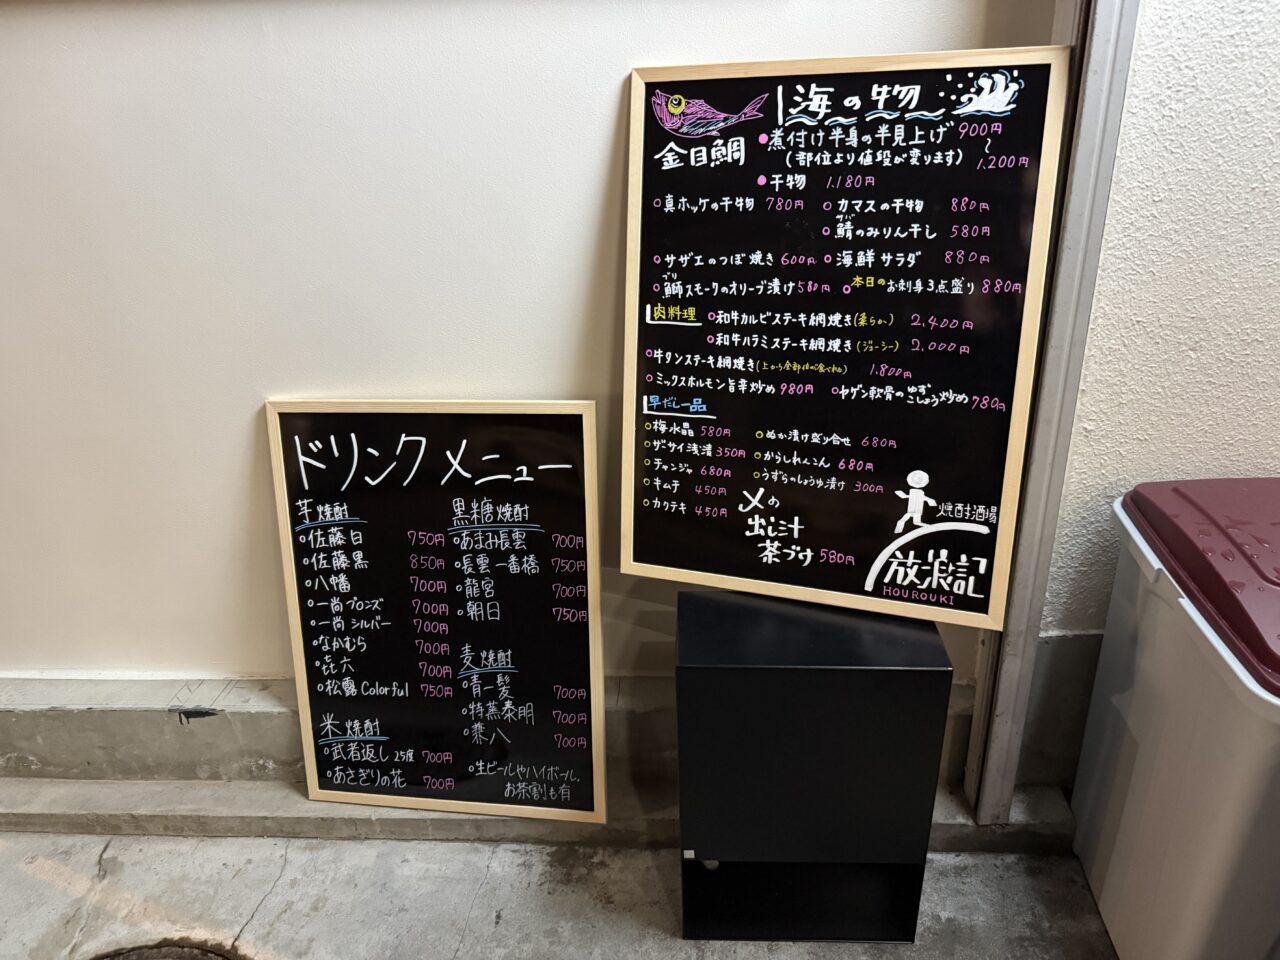 海の物
金目鯛
●煮付け半身の半見上げ 900円
〜
(部位より値段が変ります) 1,200円
●干物 1.180円
○真ホッケの干物 780円 ○カマスの干物 880円
サバ
○鯖のみりん干し 580円
○サザエのつぼ焼き 600円 ○海鮮サラダ 880円
ブリ
○鰤スモークのオリーブ漬け 580円 ○本日のお刺身3点盛り 880円
肉料理 ○和牛カルビステーキ網焼き(柔らか) 2,400円
○和牛ハラミステーキ網焼き(ジューシー) 2,000円
○牛タンステーキ網焼き 1.800円
○ミックスホルモン旨辛炒め 980円 ○ヤゲン軟骨のゆずこしょう炒め 780円
早だし一品
○梅水晶 580円 ○ぬか漬け盛り合せ 680円
○ザーサイ浅漬 350円 ○からしれんこん 680円
○チャンジャ 680円 ○うずらのしょうゆ漬け 300円
○キムチ 450円
○カクテキ 450円
〆の
出し汁
茶づけ 580円
焼酎酒場
放浪記
HOUROUKI
ドリンクメニュー
芋焼酎
○佐藤白 750円
○佐藤黒 850円
○八幡 700円
○一尚ブロンズ 700円
○一尚シルバー 700円
○なかむら 700円
○㐂六 700円
○松露Colorful 750円
米焼酎
○武者返し 25度 700円
○あさぎりの花 700円
黒糖焼酎
○あまみ長雲 700円
○長雲一番橋 750円
○龍宮 700円
○朝日 750円
麦焼酎
○青一髪 700円
○特蒸泰明 700円
○兼八 700円
○生ビールやハイボール、
お茶割も有